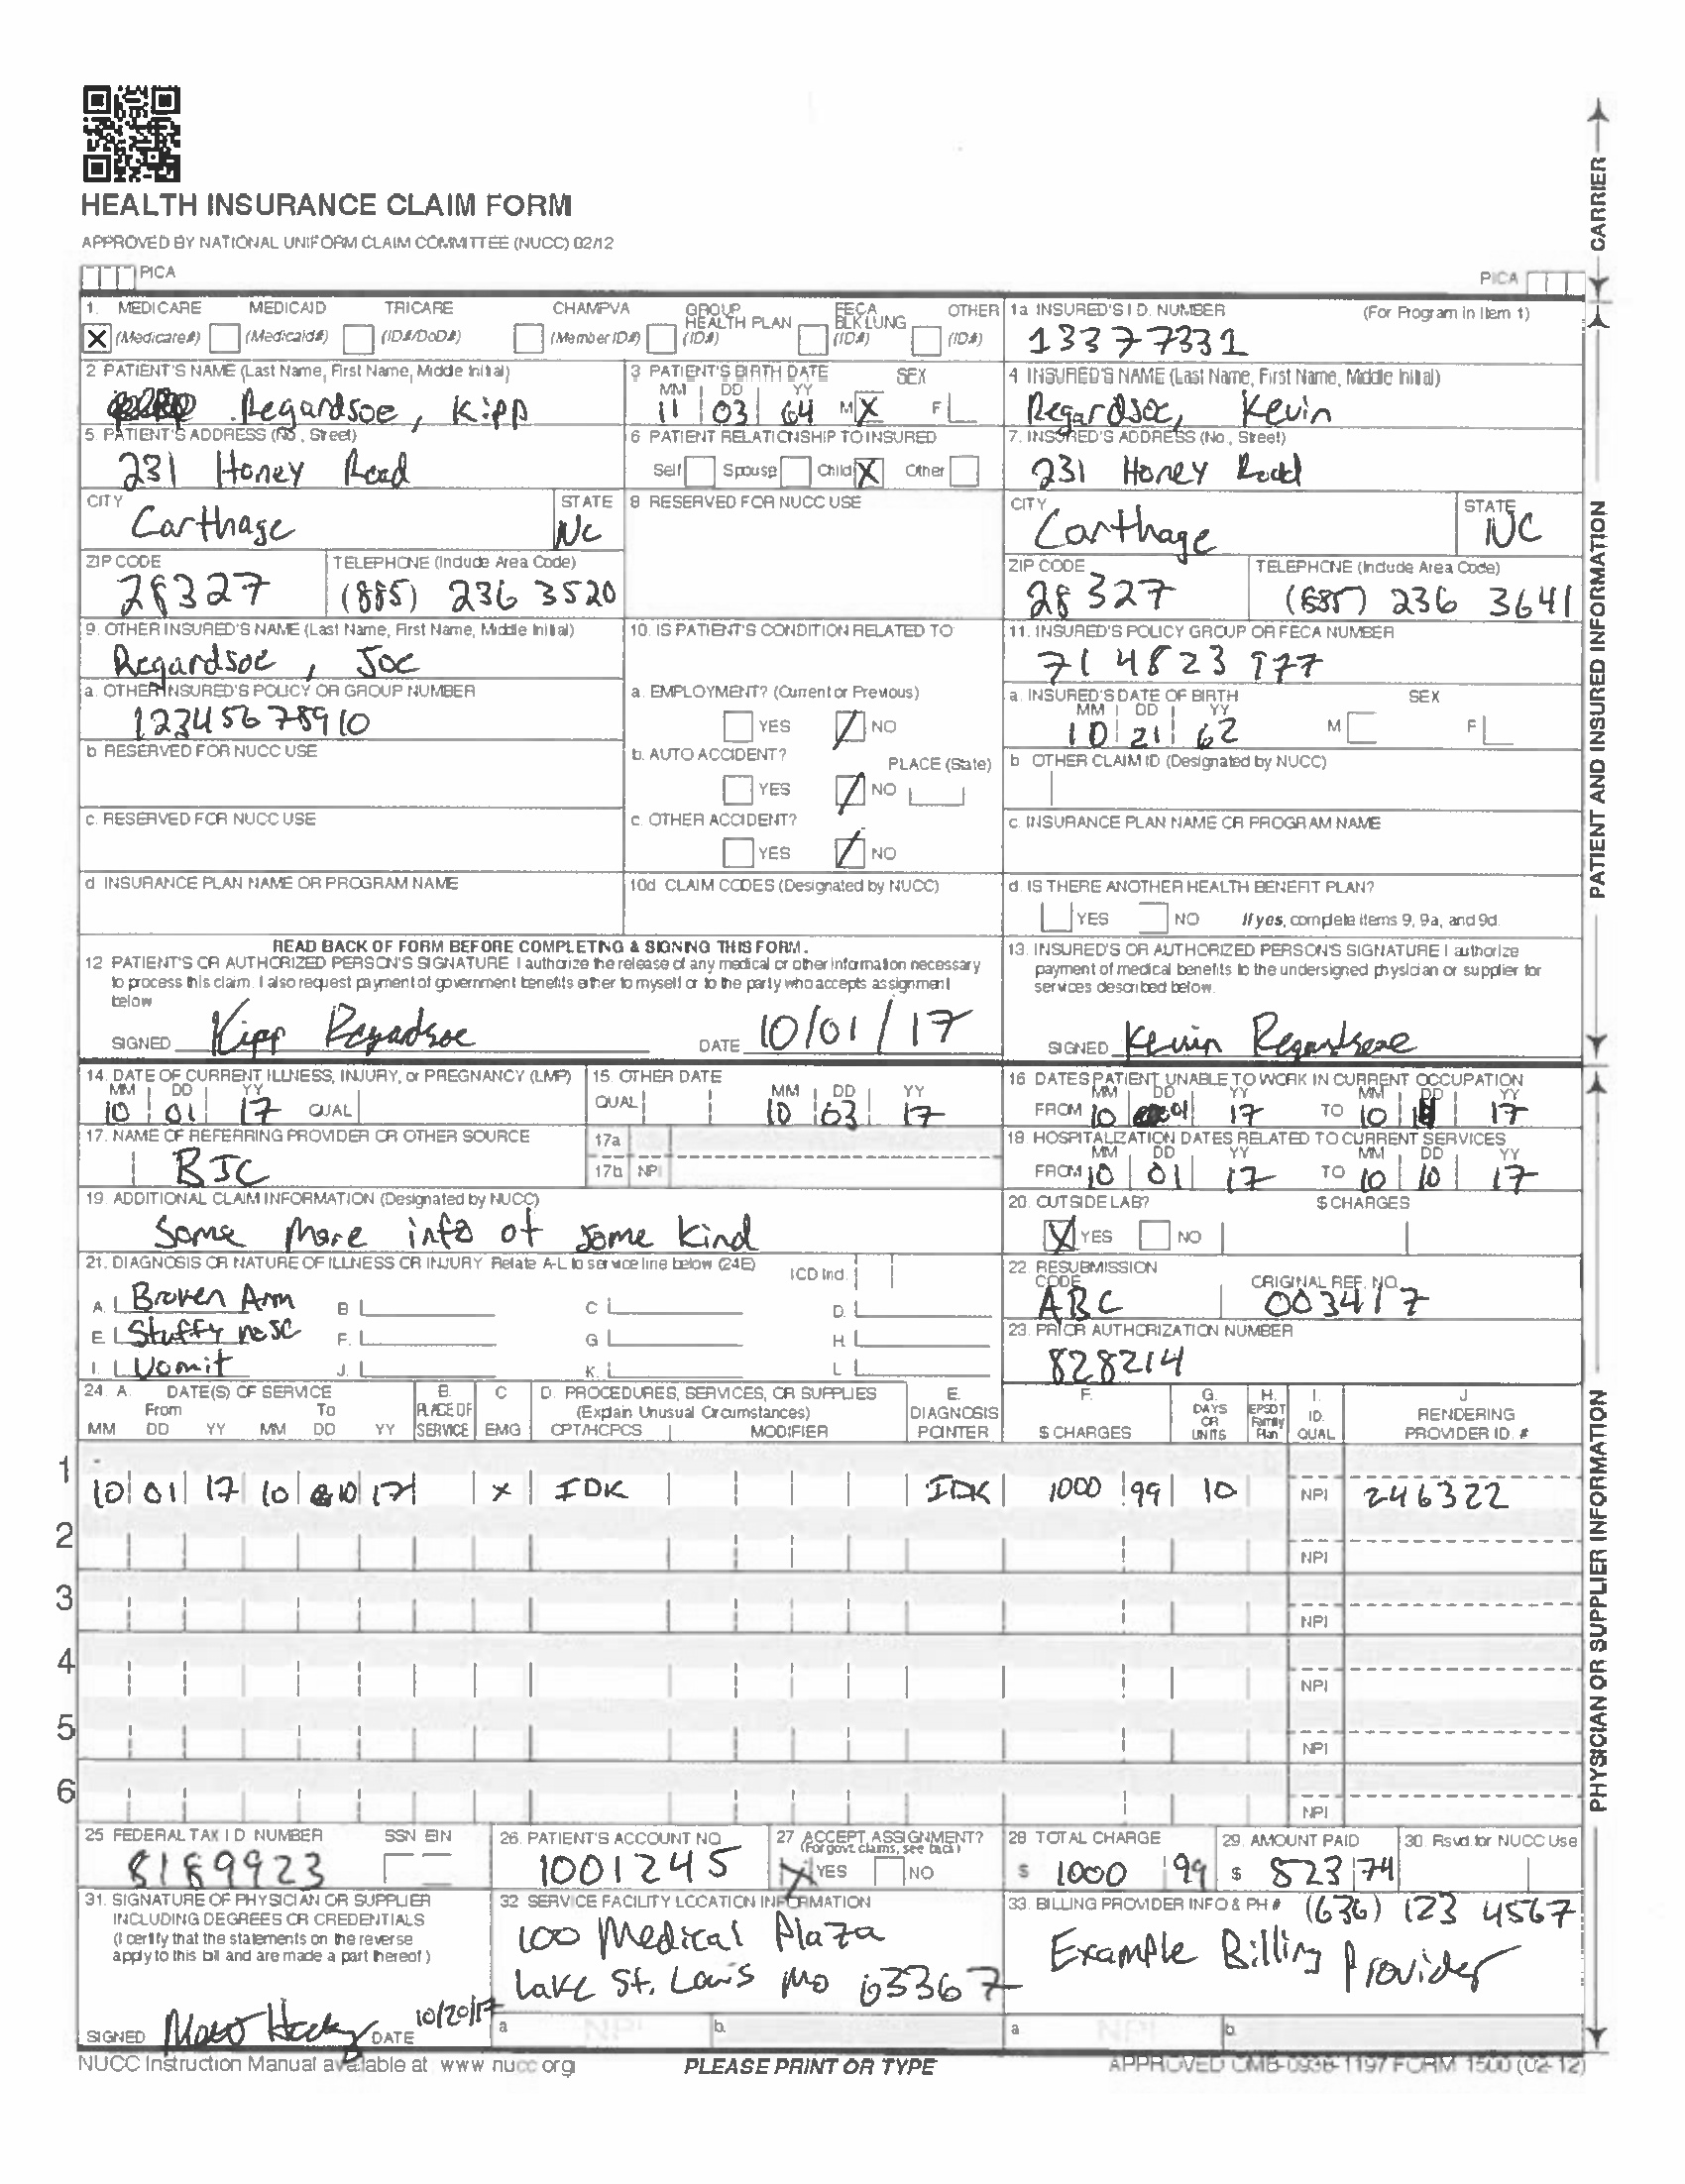 HEALTH INSURANCE CLAIM FORM
APPROVED BY NATIONAL UNIFORM CLAIM COMMITTEE (NUCC) 02/12
PICA
PICA
CARRIER
1. MEDICARE MEDICAID TRICARE CHAMPVA GROUP HEALTH PLAN FECA BLK LUNG OTHER
X (Medicare#) (Medicaid#) (ID#/DoD#) (Member ID#) (ID#) (ID#) (ID#)
1a INSURED'S I.D. NUMBER (For Program in Item 1)
13377331
2 PATIENT'S NAME (Last Name, First Name, Middle Initial)
Regardsoe, Kipp
3 PATIENT'S BIRTH DATE SEX
MM DD YY
11 03 64 M X F
4 INSURED'S NAME (Last Name, First Name, Middle Initial)
Regardsoe, Kevin
5. PATIENT'S ADDRESS (No., Street)
231 Honey Road
6 PATIENT RELATIONSHIP TO INSURED
Self Spouse Child X Other
7. INSURED'S ADDRESS (No., Street)
231 Honey Road
CITY STATE
Carthage NC
8 RESERVED FOR NUCC USE
CITY STATE
Carthage NC
ZIP CODE TELEPHONE (Include Area Code)
28327 (885) 236 3520
ZIP CODE TELEPHONE (Include Area Code)
28327 236 3641
9. OTHER INSURED'S NAME (Last Name, First Name, Middle Initial)
Regardsoe, Joe
10. IS PATIENT'S CONDITION RELATED TO
11. INSURED'S POLICY GROUP OR FECA NUMBER
71 4823 977
a. OTHER INSURED'S POLICY OR GROUP NUMBER
12345678910
a. EMPLOYMENT? (Current or Previous)
YES NO
a. INSURED'S DATE OF BIRTH SEX
MM DD YY
10 21 62 M F
b RESERVED FOR NUCC USE
b. AUTO ACCIDENT? PLACE (State)
YES NO
b OTHER CLAIM ID (Designated by NUCC)
c. RESERVED FOR NUCC USE
c. OTHER ACCIDENT?
YES NO
c. INSURANCE PLAN NAME OR PROGRAM NAME
d INSURANCE PLAN NAME OR PROGRAM NAME
10d CLAIM CODES (Designated by NUCC)
d. IS THERE ANOTHER HEALTH BENEFIT PLAN?
YES NO If yes, complete items 9, 9a, and 9d.
PATIENT AND INSURED INFORMATION
READ BACK OF FORM BEFORE COMPLETING & SIGNING THIS FORM.
12 PATIENT'S OR AUTHORIZED PERSON'S SIGNATURE I authorize the release of any medical or other information necessary
to process this claim. I also request payment of government benefits either to myself or to the party who accepts assignment
below
SIGNED Kipp Regardsoe DATE 10/01/17
13. INSURED'S OR AUTHORIZED PERSON'S SIGNATURE I authorize
payment of medical benefits to the undersigned physician or supplier for
services described below.
SIGNED Kevin Regardsoe
14. DATE OF CURRENT ILLNESS, INJURY, or PREGNANCY (LMP)
MM DD YY
10 01 17 QUAL
15. OTHER DATE
QUAL MM DD YY
10 03 17
16 DATES PATIENT UNABLE TO WORK IN CURRENT OCCUPATION
MM DD YY MM DD YY
FROM 10 01 17 TO 10 17
17. NAME OF REFERRING PROVIDER OR OTHER SOURCE
BJC
17a
17b NPI
18. HOSPITALIZATION DATES RELATED TO CURRENT SERVICES
MM DD YY MM DD YY
FROM 10 01 17 TO 10 10 17
19. ADDITIONAL CLAIM INFORMATION (Designated by NUCC)
Some more info of some kind
20. OUTSIDE LAB? $ CHARGES
X YES NO
21. DIAGNOSIS OR NATURE OF ILLNESS OR INJURY Relate A-L to service line below (24E) ICD Ind.
A. Broken Arm B C D.
E. Stuffy nose F. G H.
I. Vomit J. K. L
22. RESUBMISSION CODE ORIGINAL REF. NO.
ABC 003417
23. PRIOR AUTHORIZATION NUMBER
828214
24. A. DATE(S) OF SERVICE B. PLACE OF SERVICE C EMG D. PROCEDURES, SERVICES, OR SUPPLIES E. DIAGNOSIS POINTER F. $ CHARGES G. DAYS OR UNITS H. EPSDT Family Plan I. ID. QUAL J RENDERING PROVIDER ID. #
From To (Explain Unusual Circumstances)
MM DD YY MM DD YY CPT/HCPCS MODIFIER
1 10 01 17 10 10 17 X IDK IDK 1000 99 10 NPI 246322
2 NPI
3 NPI
4 NPI
5 NPI
6 NPI
PHYSICIAN OR SUPPLIER INFORMATION
25 FEDERAL TAX I D NUMBER SSN EIN
8189923
26. PATIENT'S ACCOUNT NO
1001245
27 ACCEPT ASSIGNMENT?
(For govt. claims, see back)
X YES NO
28 TOTAL CHARGE
$ 1000 99
29. AMOUNT PAID
$ 823 74
30. Rsvd for NUCC Use
31. SIGNATURE OF PHYSICIAN OR SUPPLIER
INCLUDING DEGREES OR CREDENTIALS
(I certify that the statements on the reverse
apply to this bill and are made a part thereof)
SIGNED DATE 10/20/17
32 SERVICE FACILITY LOCATION INFORMATION
100 Medical Plaza
Lake St. Louis Mo 63367
a NPI b.
33. BILLING PROVIDER INFO & PH # (636) 123 4567
Example Billing Provider
a NPI b
NUCC Instruction Manual available at www nucc org
PLEASE PRINT OR TYPE
APPROVED OMB-0938-1197 FORM 1500 (02-12)